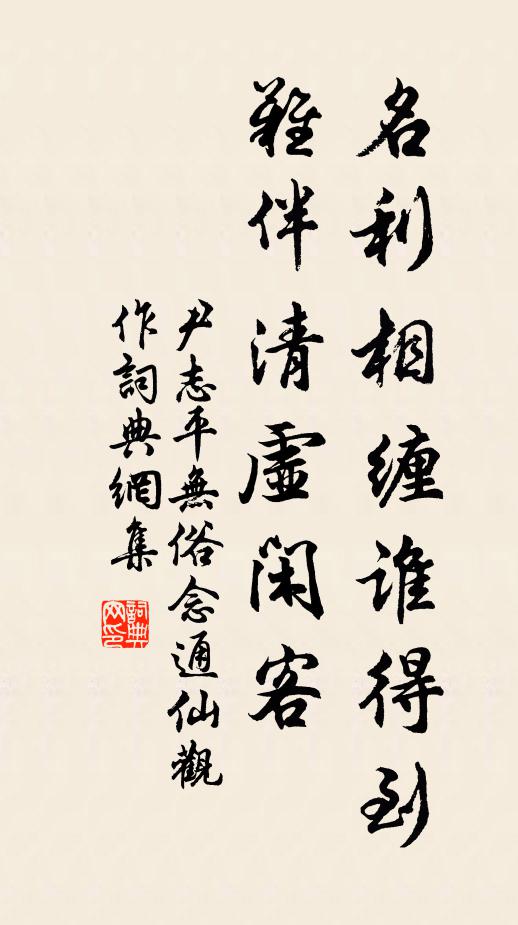 名利相缠谁得到
難伴清虛闲客
尹志平無俗念通仙觀
作詞典網集
詞典网印